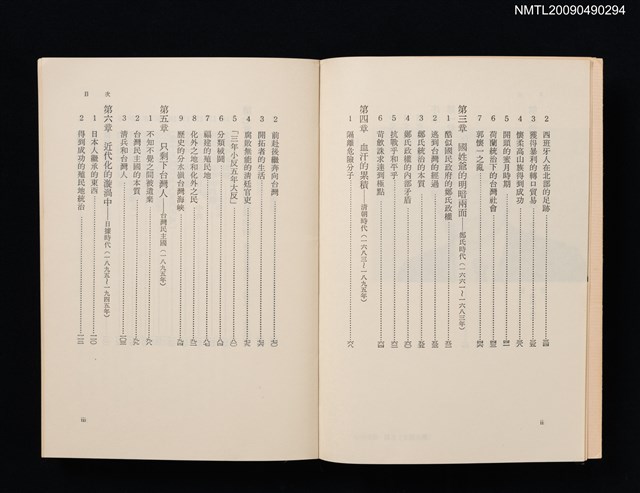 NMTL20090490294
2 西班牙人在北部的足跡
3 獲得暴利的轉口貿易
4 懷柔高山族得到成功
5 開頭的蜜月時期
6 荷蘭統治下的台灣社會
7 郭懷一之亂
第三章 國姓爺的明暗兩面——鄭氏時代(一六六一~一六八三年)
1 酷似國民政府的鄭氏政權
2 逃到台灣的經過
3 鄭氏統治的本質
4 鄭氏政權的內部矛盾
5 抗戰乎和平乎
6 苛歛誅求達到極點
第四章 血汗的累積——清朝時代(一六八三~一八九五年)
1 隔離危險分子
2 前赴後繼奔向台灣
3 開拓者的生活
4 腐敗無能的清廷官吏
5 「三年小反五年大反」
6 分類械鬪
7 福建的殖民地
8 化外之地和化外之民
9 歷史的分水嶺台灣海峽
第五章 只剩下台灣人——台灣民主國(一八九五年)
1 不知不覺之間被遺棄
2 台灣民主國的本質
3 清兵和台灣人
第六章 近代化的漩渦中——日據時代(一八九五~一九四五年)
1 日本人繼承的東西
2 得到成功的殖民地統治
目 次